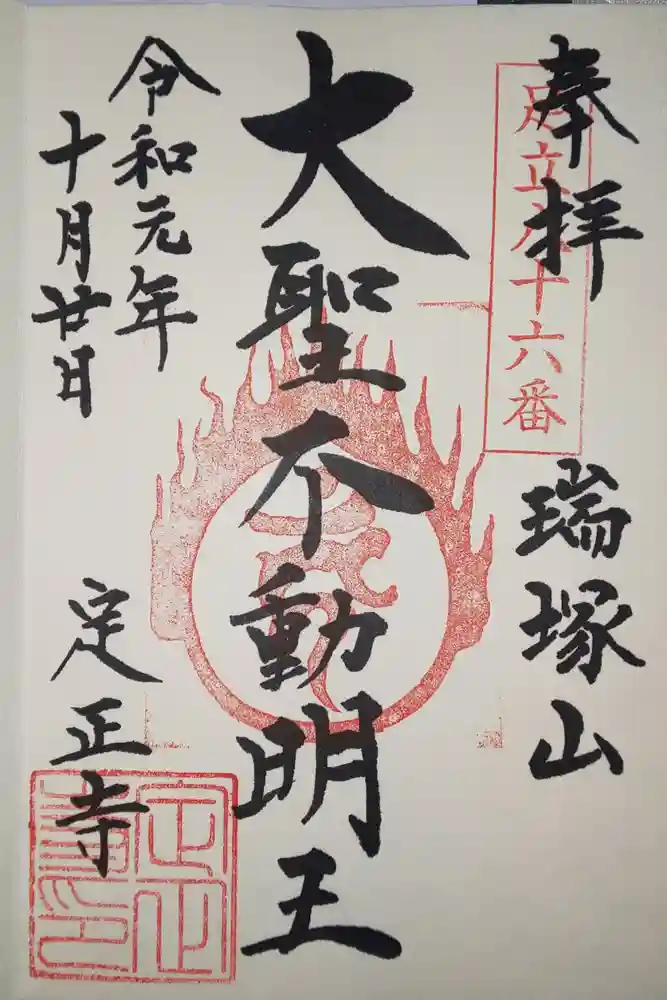 奉拝
足立八十六番
瑞塚山
大聖不動明王
令和元年
十月廿日
定正寺
定正
寺印